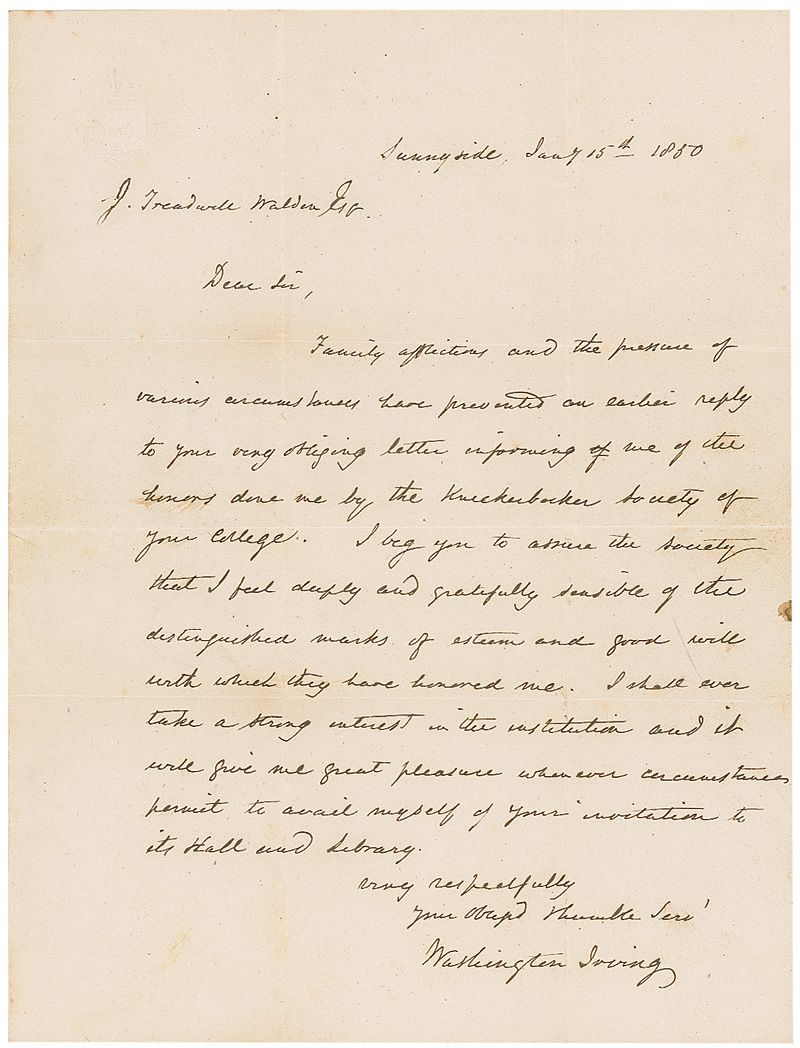 Sunnyside, Jany 15th 1850
J. Treadwell Walden Esq.
Dear Sir,
Family afflictions and the pressure of
various circumstances have prevented an earlier reply
to your very obliging letter informing of me of the
honors done me by the Knickerbocker Society of
your College. I beg you to assure the society
that I feel deeply and gratefully sensible of the
distinguished marks of esteem and good will
with which they have honored me. I shall ever
take a strong interest in the institution and it
will give me great pleasure whenever circumstances
permit to avail myself of your invitation to
its Hall and Library.
very respectfully
your Obligd Humble Servt
Washington Irving